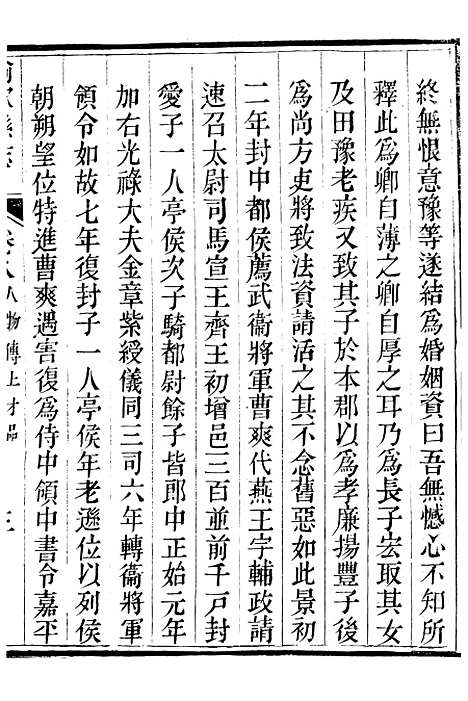 終無恨意豫等遂結爲婚姻資曰吾無憾心不知所
釋此爲卿自薄之卿自厚之耳乃爲長子宏取其女
及田豫老疾又致其子於本郡以爲孝廉揚豐子後
爲尚方吏將致法資請活之其不念舊惡如此景初
二年封中都侯薦武衞將軍曹爽代燕王宇輔政請
速召太尉司馬宣王齊王初增邑三百並前千戸封
愛子一人亭侯次子騎都尉餘子皆郎中正始元年
加右光祿大夫金章紫綬儀同三司六年轉衞將軍
領令如故七年復封子一人亭侯年老遜位以列侯
朝朔望位特進曹爽遇害復爲侍中領中書令嘉平
榆次縣志 卷八 人物傳上 才品 三